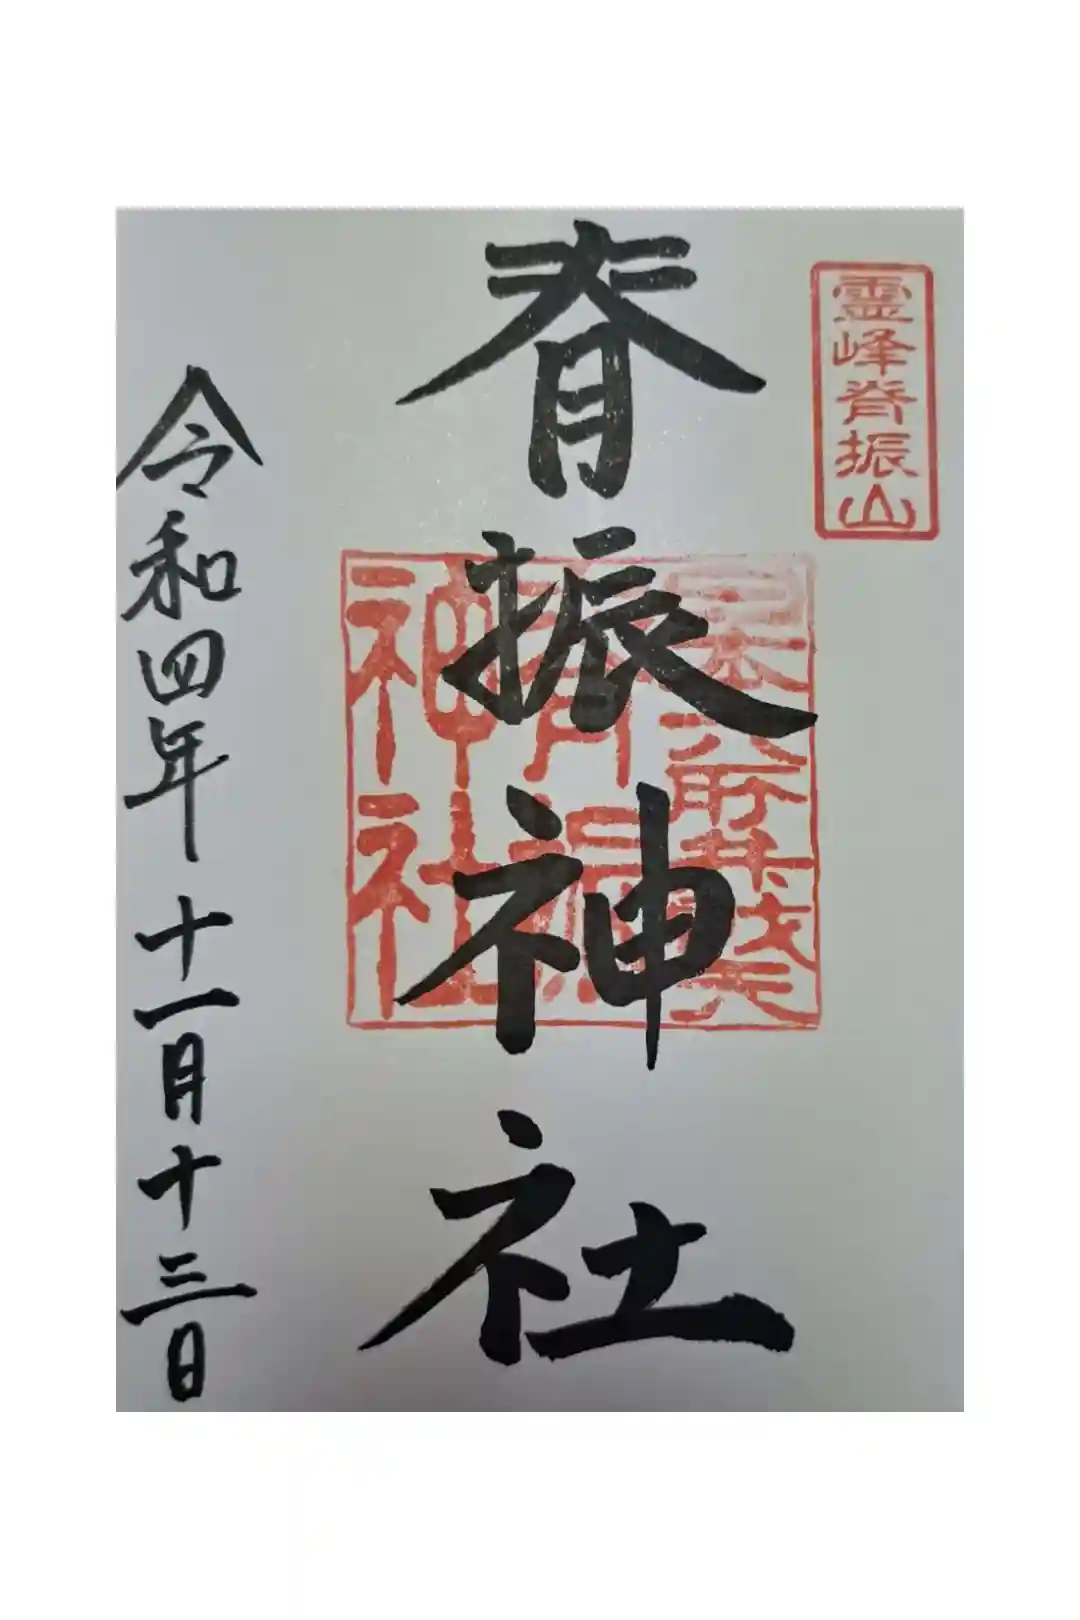 霊峰脊振山
脊振神社
脊振
神社
令和四年十一月十三日